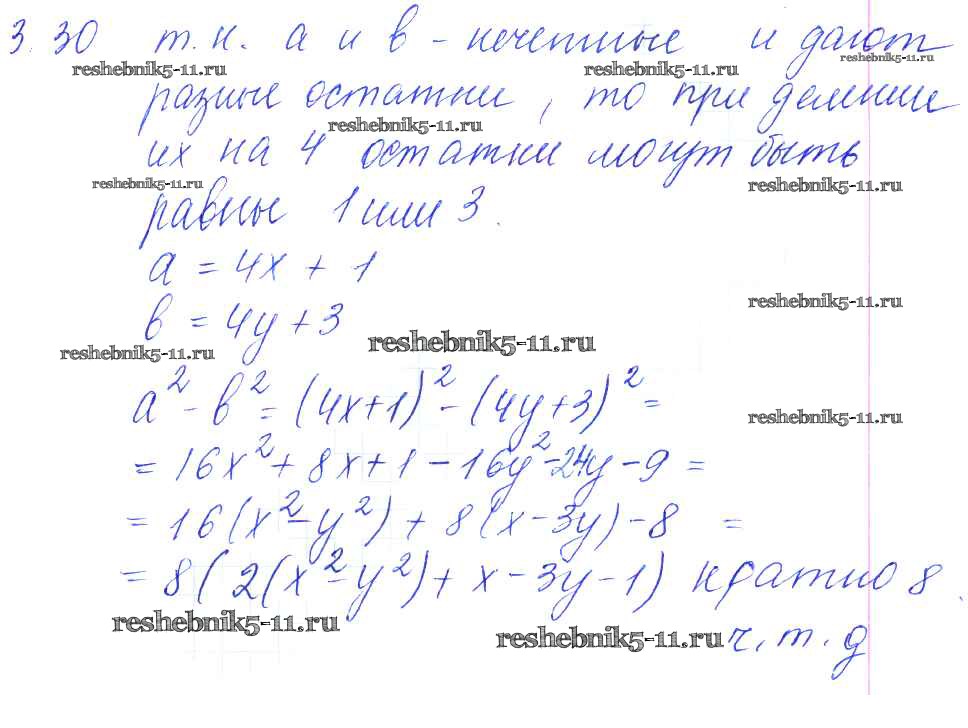 3.30 т.к. a и в - нечетные и дают
reshebnik5-11.ru reshebnik5-11.ru reshebnik5-11.ru
разные остатки, то при делении
reshebnik5-11.ru
их на 4 остатки могут быть
reshebnik5-11.ru reshebnik5-11.ru
равны 1 или 3.
a = 4x + 1
reshebnik5-11.ru
в = 4y + 3
reshebnik5-11.ru reshebnik5-11.ru
a² - в² = (4x+1)² - (4y+3)² =
reshebnik5-11.ru
= 16x² + 8x + 1 - 16y² - 24y - 9 =
= 16(x² - y²) + 8(x - 3y) - 8 =
= 8(2(x² - y²) + x - 3y - 1) кратно 8.
reshebnik5-11.ru reshebnik5-11.ru ч.т.д